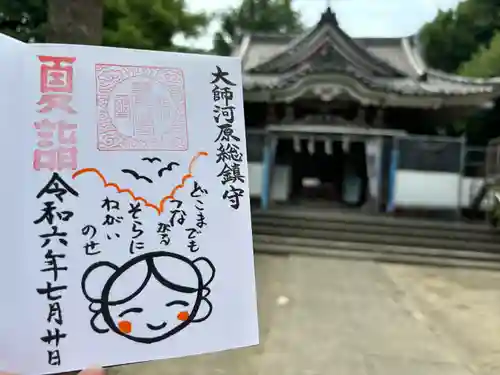 大師河原総鎮守
どこまでも
つながる
そらに
ねがい
のせ
夏詣
令和六年七月廿日